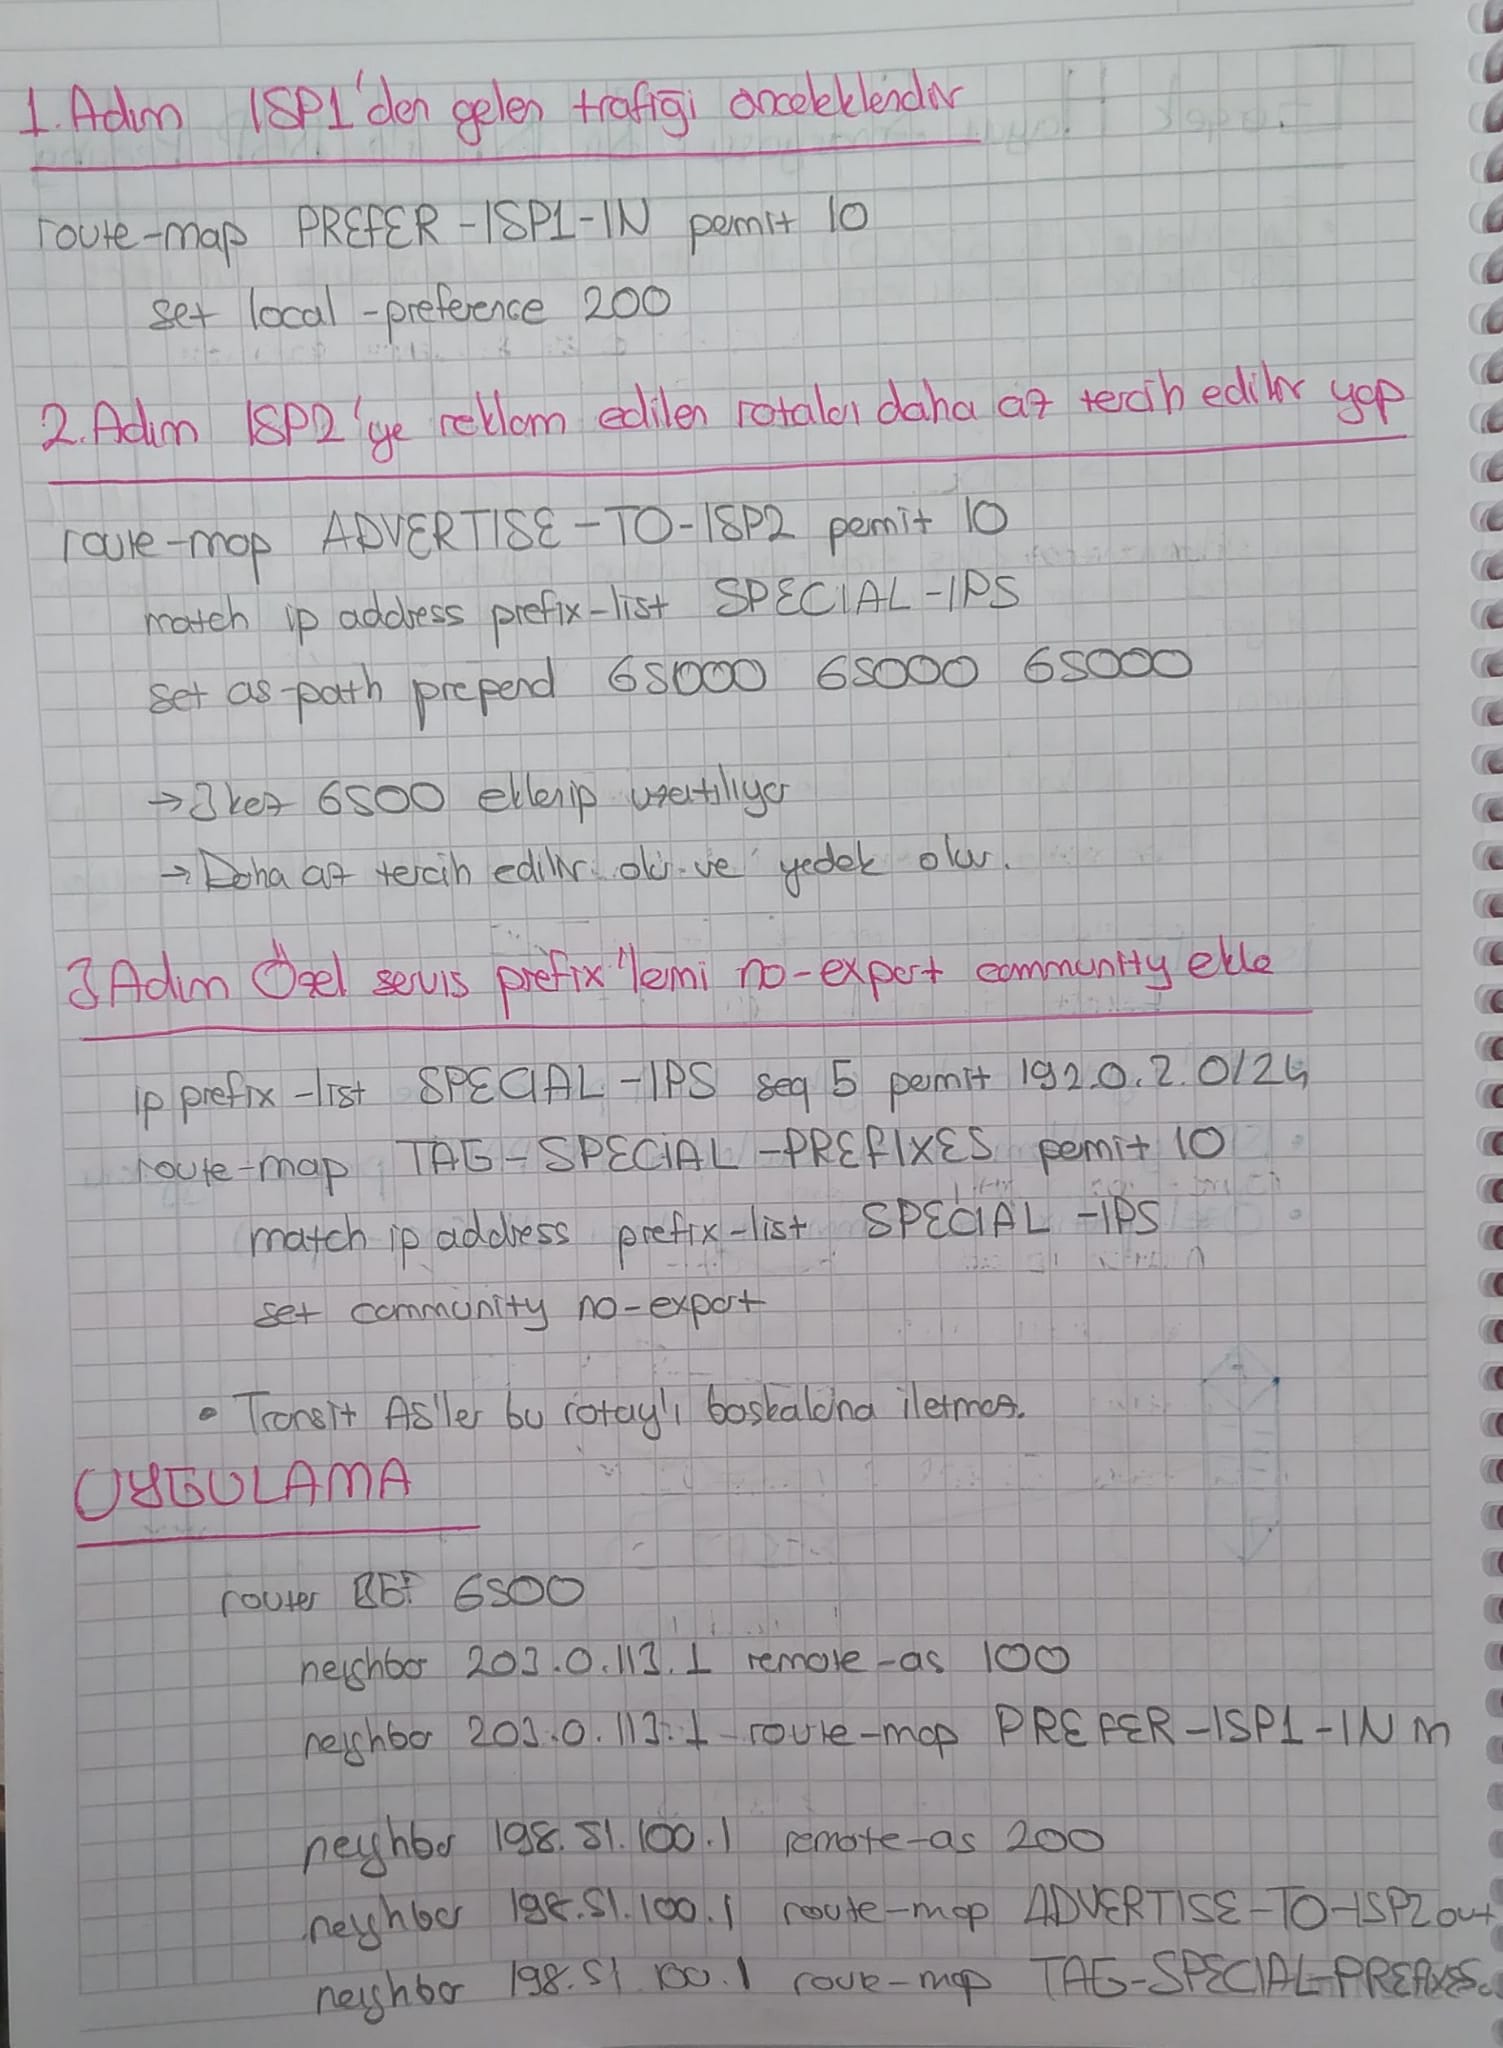 1.Adım ISP1'den gelen trafiği önceliklendir
route-map PREFER-ISP1-IN permit 10
set local-preference 200
2.Adım ISP2'ye reklam edilen rotaları daha az tercih edilir yap
route-map ADVERTISE-TO-ISP2 permit 10
match ip address prefix-list SPECIAL-IPS
set as-path prepend 65000 65000 65000
→3 kez 6500 eklenip uzatılıyor
→Daha az tercih edilir olur ve yedek olur.
3.Adım Özel servis prefix'lerini no-export community ekle
ip prefix-list SPECIAL-IPS seq 5 permit 192.0.2.0/24
route-map TAG-SPECIAL-PREFIXES permit 10
match ip address prefix-list SPECIAL-IPS
set community no-export
• Transit AS'ler bu rotay'ı başkalarına iletmez.
UYGULAMA
router BGP 6500
neighbor 203.0.113.1 remote-as 100
neighbor 203.0.113.1 route-map PREFER-ISP1-IN in
neighbor 198.51.100.1 remote-as 200
neighbor 198.51.100.1 route-map ADVERTISE-TO-ISP2 out
neighbor 198.51.100.1 route-map TAG-SPECIAL-PREFIXES